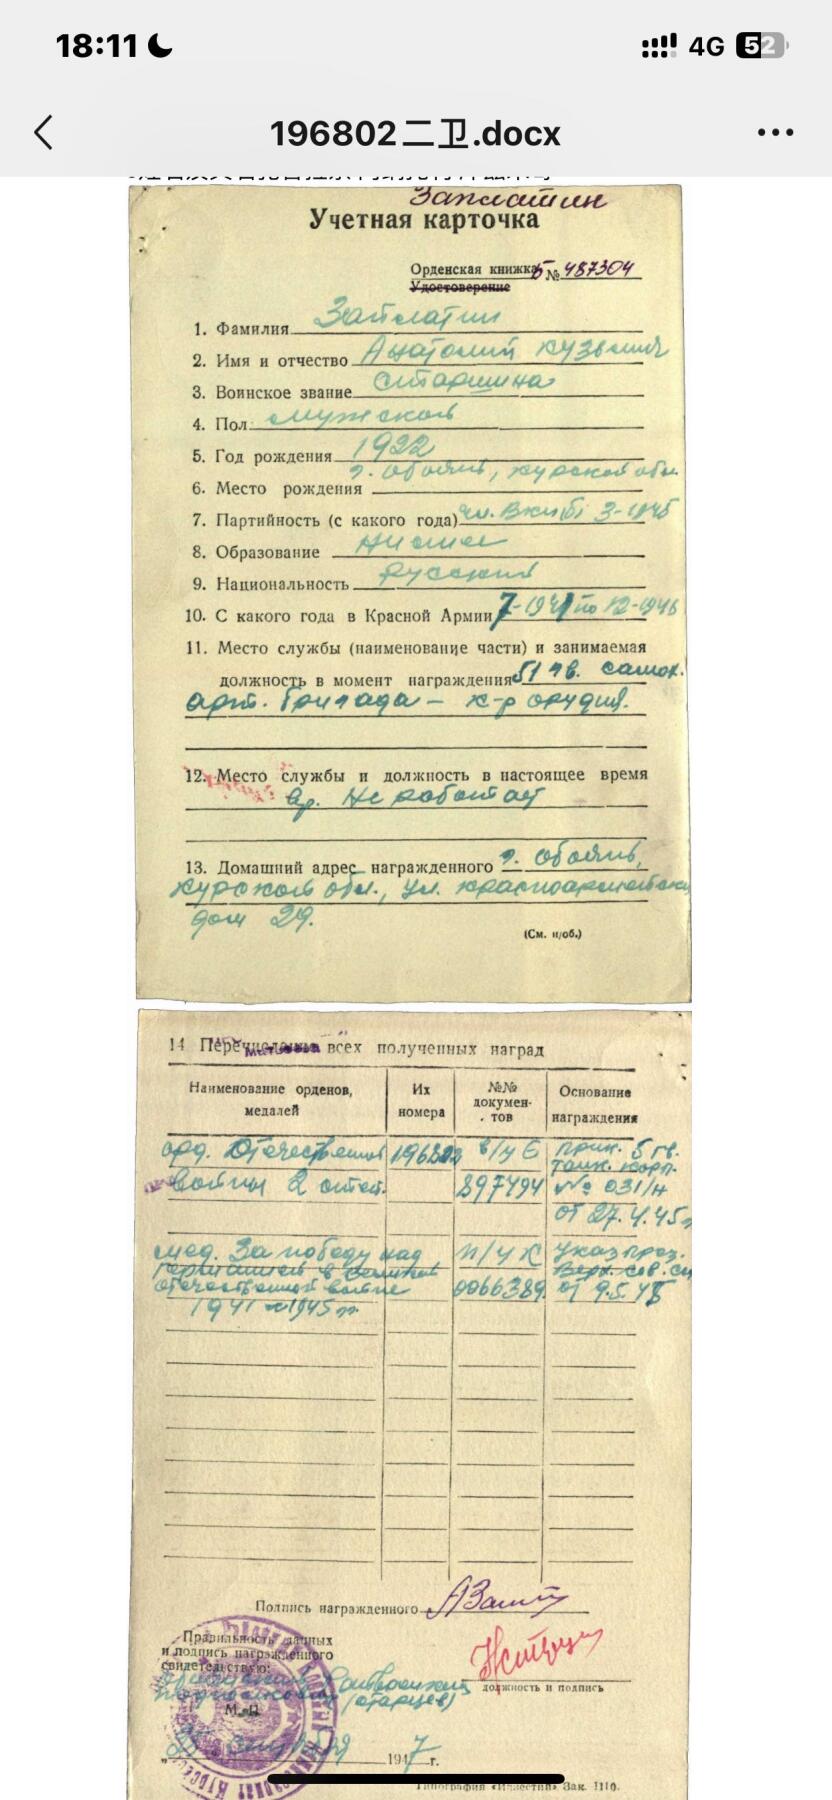 18:11
4G 52
196802二卫.docx
Заплатин
Учетная карточка
Орденская книжка Б № 487304
Удостоверение
1. Фамилия Заплатин
2. Имя и отчество Анатолий Кузьмич
3. Воинское звание старшина
4. Пол мужской
5. Год рождения 1922
6. Место рождения г. Обоянь, Курской обл.
7. Партийность (с какого года) чл. ВКП(б) 3-1945
8. Образование низшее
9. Национальность русский
10. С какого года в Красной Армии 7-1941 по 12-1946
11. Место службы (наименование части) и занимаемая
должность в момент награждения 51 гв. самох.
арт. бригада – к-р орудия.
12. Место службы и должность в настоящее время
вр. не работает
13. Домашний адрес награжденного г. Обоянь,
Курской обл., ул. Красноармейская
дом 29.
(См. н/об.)
14 Перечисление всех полученных наград
Наименование орденов, медалей
Их номера
№№ документов
Основание награждения
орд. Отечественной 196802 в/у Е прик. 5 гв.
танк. корп.
войны 2 степ. 897494 № 031/н
от 27.4.45г
мед. За победу над п/у К Указ през.
германией в великой Верх. сов. сс
отечественной войне 0066389 от 9.5.45
1941–1945 гг.
Подпись награжденного
Правильность данных
и подпись награжденного
свидетельствую:
(Старцев)
должность и подпись
М. П.
1947 г.
Типография «Известий» Зак. 1110.